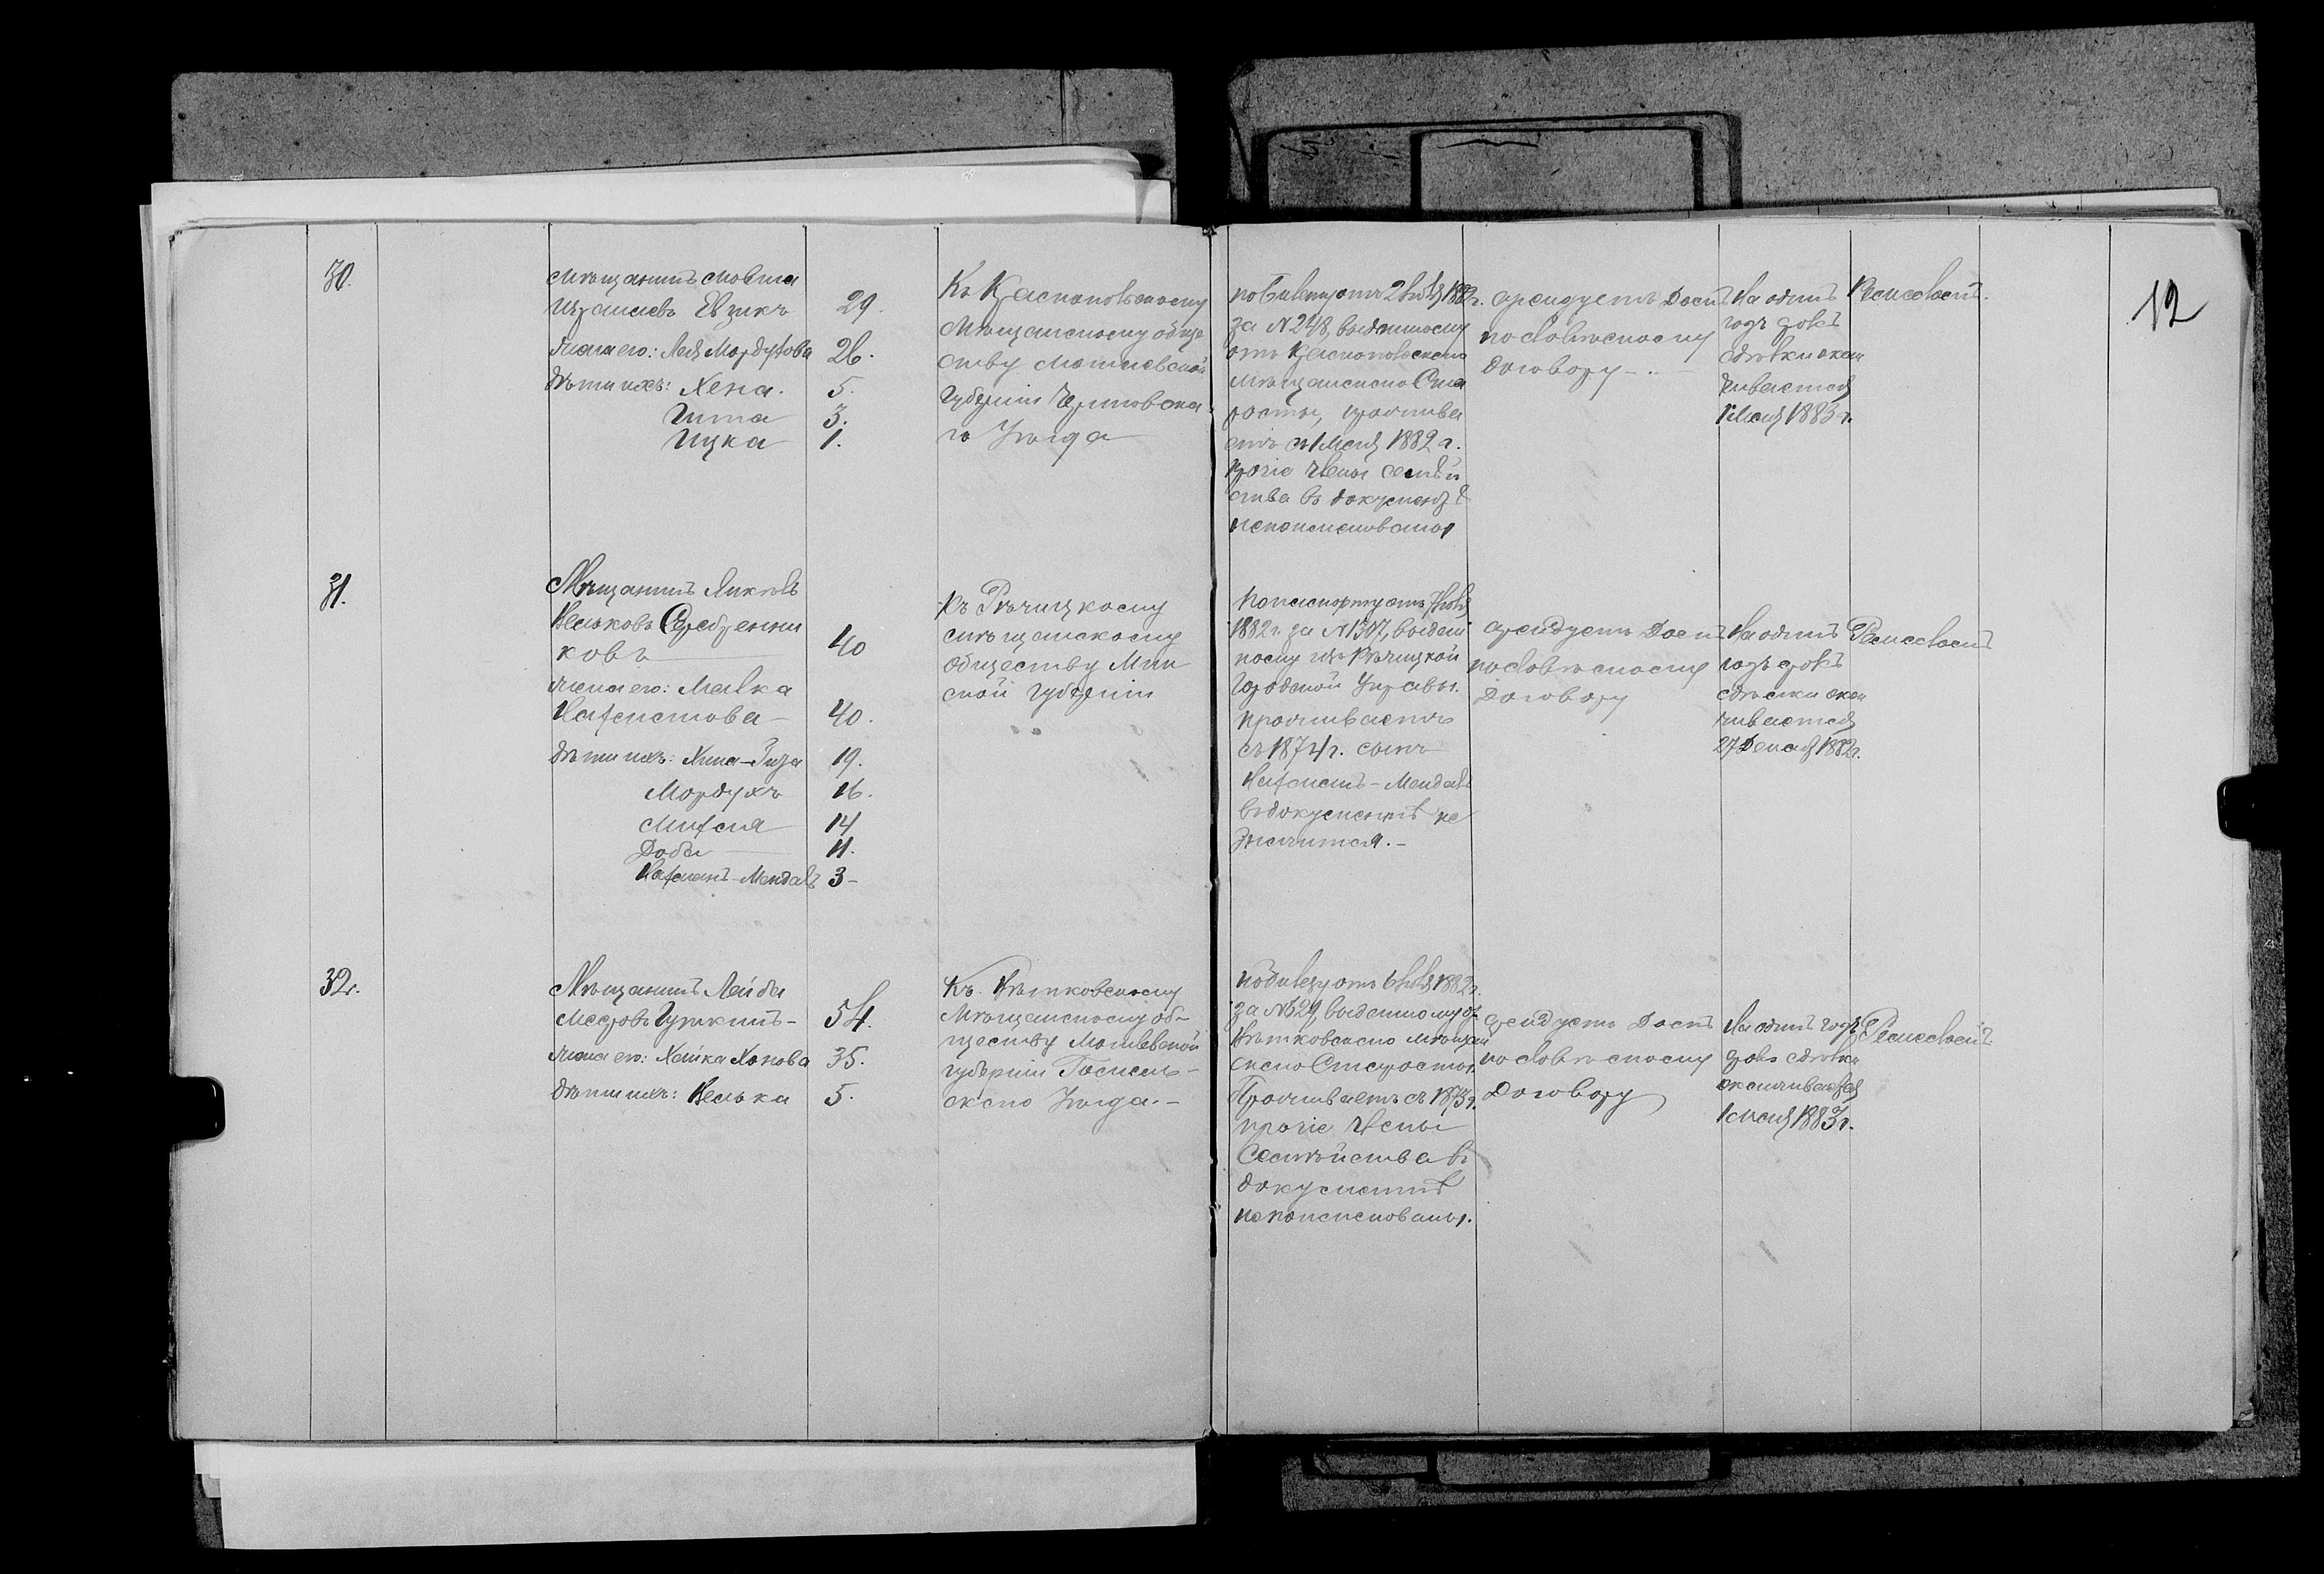 12
30.
Мѣщанинъ Мовша
Израилевъ Евзикъ 29.
жена его: Лея Мордухова 26.
дѣти ихъ: Хена. 5.
Гита 3.
Ицка 1.
Къ Краснопольскому
Мѣщанскому обще
ству Могилевской
Губерніи Чериковска
го Уѣзда
по билету отъ 2 1882 г.
за № 248, выданному
отъ Краснопольскаго
Мѣщанскаго Ста
росты, прожива
етъ съ 1 Мая 1882 г.
прочіе члены семѣй
ства въ документѣ
непоименованы
арендуетъ Домъ
по словѣсному
Договору
На одинъ
годъ срокъ
сдѣлки окан
чивается
1 Мая 1883 г.
31.
Мѣщанинъ Янкель
Серебренни
ковъ 40
жена его: Малка
40.
дѣти ихъ: 19.
Мордухъ 16.
14
Доба 11.
Мендель 3
Къ Рѣчицкому
мѣщанскому
обществу Мин
ской Губерніи
по паспорту отъ
1882 г. за № 1307, выдан
ному изъ Рѣчицкой
Городской Управы.
проживаетъ
съ 1874 г. сынъ
Мендель
въ документѣ не
значится.
арендуетъ Домъ
по словѣсному
Договору
На одинъ
годъ срокъ
сдѣлки окан
чивается
27 Декаб 1882 г.
32.
Мѣщанинъ Лейба
54.
жена его: Хайка 35.
дѣти ихъ: 5.
Къ Вѣтковскому
Мѣщанскому об-
ществу Могилевской
губерніи Гомель-
скаго Уѣзда.
по билету отъ 6 1882 г.
за № 529, выданному отъ
Вѣтковскаго мѣщан
скаго Старосты.
Проживаетъ съ
прочіе члены
Семѣйства въ
документѣ
не поименованы.
арендуетъ Домъ
по словѣсному
Договору
На одинъ годъ
срокъ сдѣлки
оканчивается
1 Мая 1883 г.